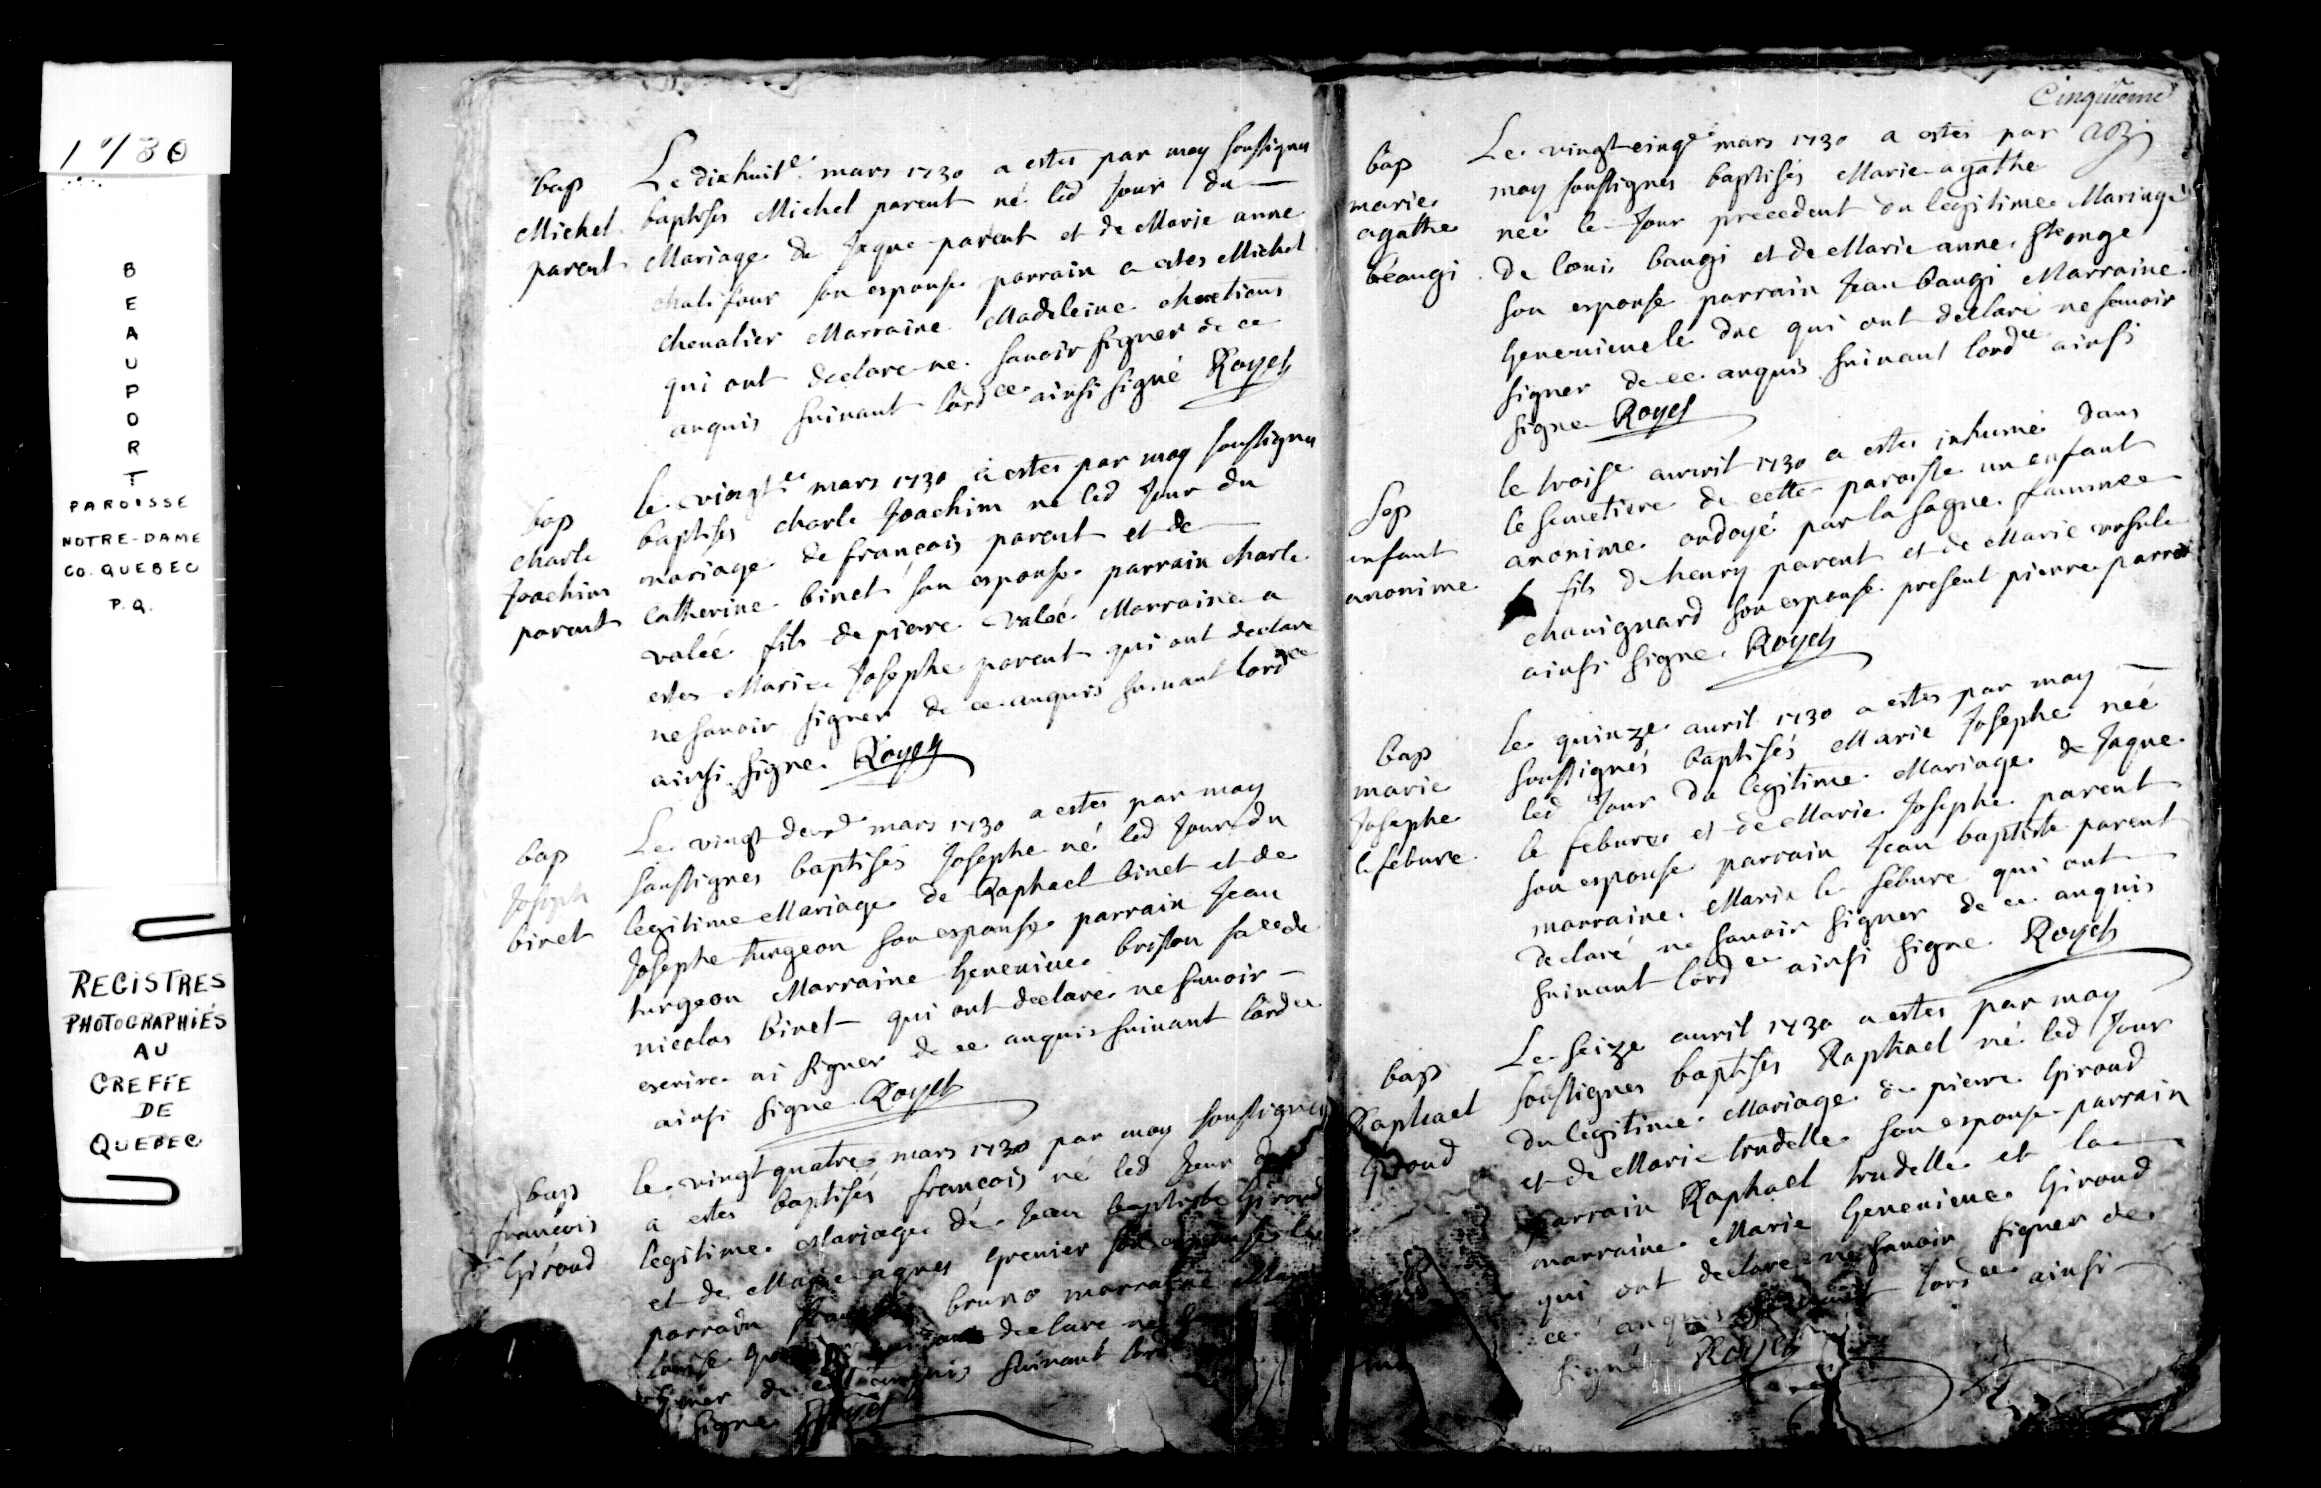 1730
BEAUPORT
PAROISSE
NOTRE-DAME
CO. QUEBEC
P.Q.
REGISTRES
PHOTOGRAPHIÉS
AU
GREFFE
DE
QUEBEC
bap
Michel
parent
Le dix huit.e mars 1730 a estes par moy soussignes
baptises Michel parent né led Jour du
Mariage de Jaque parent et de Marie anne
chalifour son espouse parrain a estes Michel
chevalier Marraine Madeleine chretiens
qui ont declare ne savoir signer de ce
anquis suivant lordce ainsi signé Royer
bap
charle
Joachim
parent
le vingt.e mars 1730 a estes par moy soussignes
baptises charle Joachim ne led Jour du
mariage de françois parent et de
Catherine binet son espouse parrain charle
valéé fils de pierre valéé Marraine a
estes Marie Josephe parent qui ont declare
ne savoir signer de ce anquis suivant lordce
ainsi signe Royer
bap
Joseph
binet
Le vingt deux.e mars 1730 a estes par moy
soussignes baptisés Josephe né led Jour du
legitime Mariage de Raphael binet et de
Josephe turgeon son espouse parrain Jean
turgeon Marraine Genevieve brisson fa ce de
nicolas binet qui ont declare ne savoir
escrire ni signer de ce anquis suivant lordce
ainsi signe Royer
bap
françois
Giroud
le vingt quatre mars 1730 par moy soussignes
a estes baptisés françois né led Jour du
legitime Mariage de Jean baptiste Giroud
et de Marie agnes Grenier son espouse le
parrain bruno marraine
louise declare ne
signer de ce anquis suivant lord
signe Royer
Cinquieme
bap
marie
agathe
beaugi
Le vingt cinq.e mars 1730 a estes par
moy soussignés baptisés Marie agathe
néé le Jour precedent du legitime Mariage
de louis baugi et de Marie anne Ste onge
son espouse parrain Jean baugi Marraine
Genevieve le duc qui ont declaré ne savoir
signer de ce anquis suivant lordce ainsi
signe Royer
Sep
enfant
anonime
le trois.e avril 1730 a estes inhumé dans
le semetiere de cette paroisse un enfant
anonime ondoyé par la sagne famme
fils de henry parent et de Marie ursule
chavignard son espouse present pierre parent
ainsi signe Royer
bap
marie
Josephe
lefebure
le quinze avril 1730 a estes par moy
soussignés baptisés Marie Josephe néé
led Jour du legitime Mariage de Jaque
le febure et de Marie Josephe parent
son espouse parrain Jean baptiste parent
marraine Marie le febure qui ont
declaré ne savoir signer de ce anquis
suivant lordce ainsi signe Royer
bap
Raphael
Giroud
Le seize avril 1730 a estes par moy
soussignes baptises Raphael né led Jour
du legitime Mariage de pierre Giroud
et de Marie trudelle son espouse parrain
parrain Raphael trudelle et la
marraine Marie Genevieve Giroud
qui ont declare ne savoir signer de
ce anquis suivant lordce ainsi
signé Royer